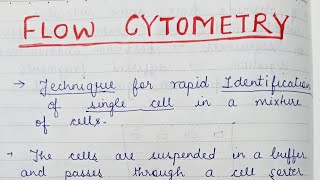 FLOW CYTOMETRY
→ Technique for rapid Identification
of single cell in a mixture
of cells.
• The cells are suspended in a buffer
and passes through a cell sorter